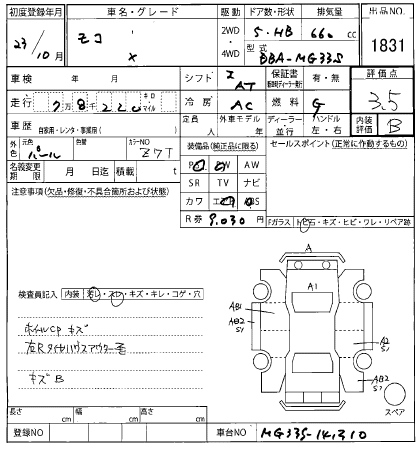 初度登録年月 車名・グレード 駆動 ドア数・形状 排気量 出品NO.
23/10月 モコ X 2WD 4WD 5・HB 660 cc 1831
型式 DBA-MG33S
車検 年 月 シフト AT 保証書 有・無 評価点
3.5
走行 7万8千220 キロ マイル 冷房 AC 燃料 G
車歴 自家用・レンタ・事業用( ) 定員 人 外車モデル 年 ディーラー 並行 ハンドル 左・右 内装評価 B
外色 元色 パール 色替 カラーNO Z7T 装備品(純正品に限る) セールスポイント(正常に作動するもの)
名義変更期限 月 日迄 積載 t PS PW AW
SR TV ナビ
注意事項(欠品・修復・不具合箇所および状態) カワ エアB ABS
R券 9,030 円 Fガラス トビ石・キズ・ヒビ・ワレ・リペア跡
A
A1
検査員記入 内装 汚レ・スレ・キズ・キレ・コゲ・穴
AB1
AB2
S1
A2
S1
AB2
S2
ホイルCPキズ
左Rタイヤハウスアウター歪
キズB
スペア
長さ cm 幅 cm 高さ cm
登録NO 車台NO MG33S-141310